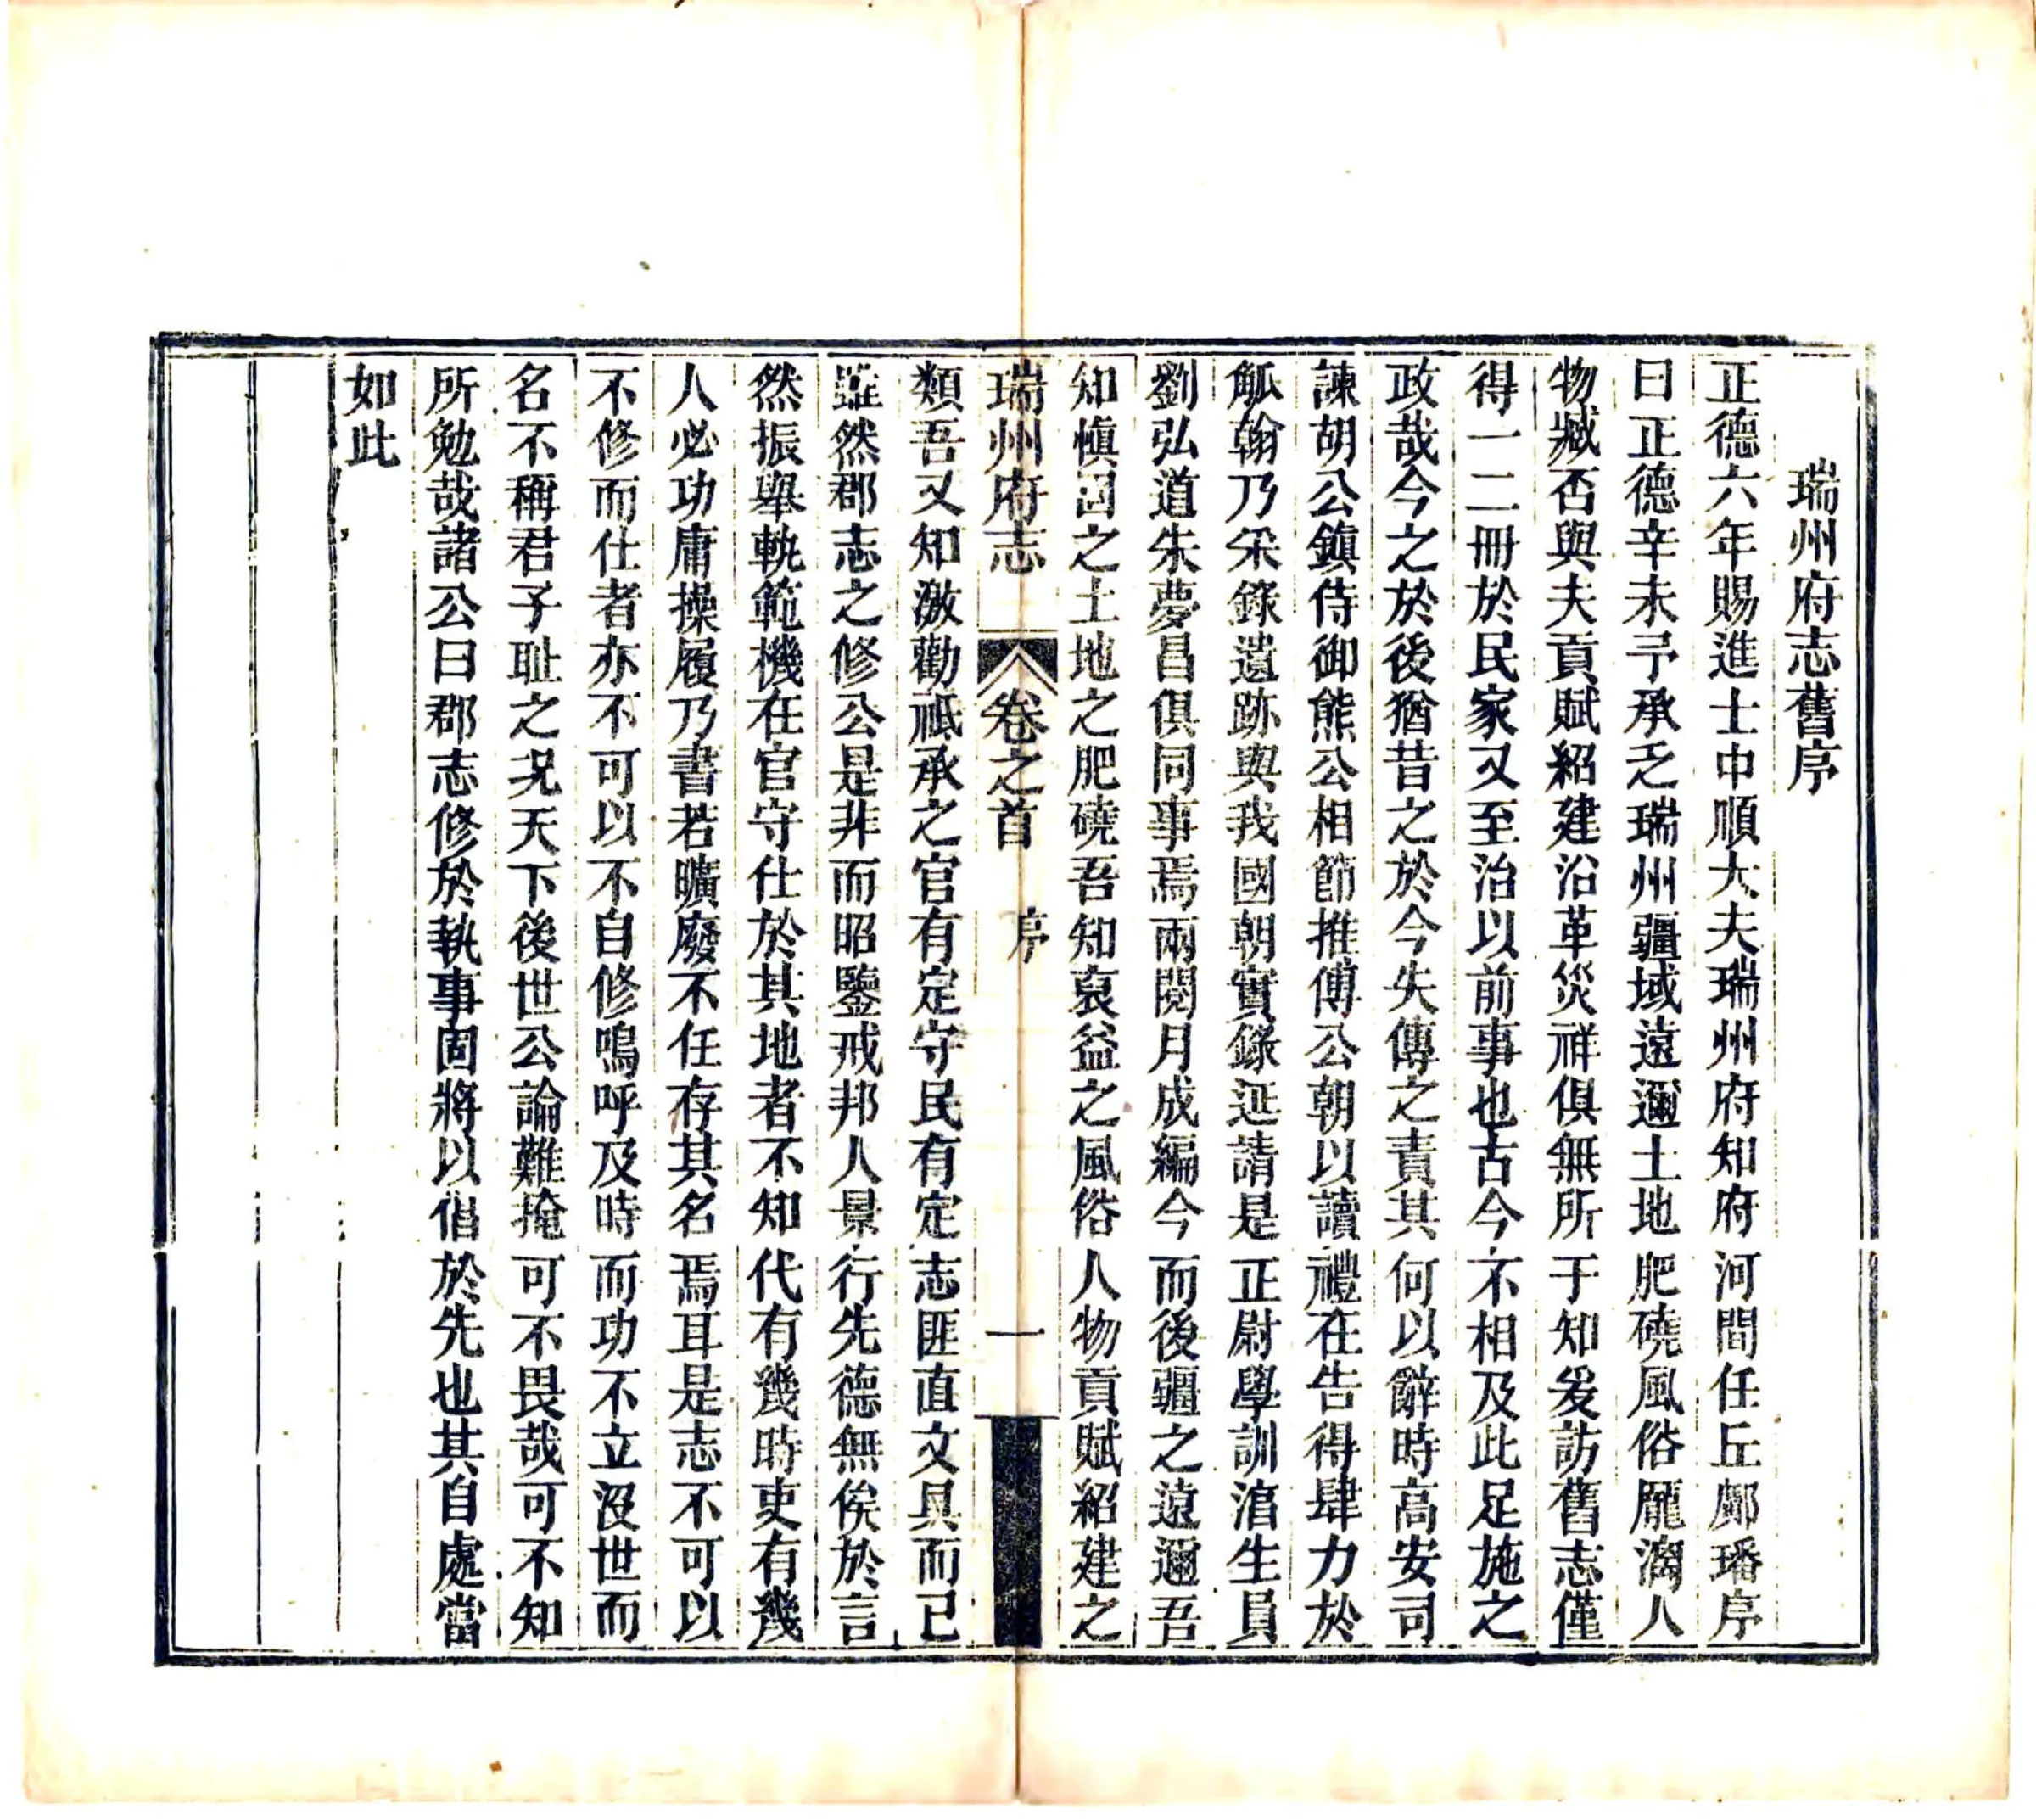 瑞州府志舊序
正德六年賜進士中順大夫瑞州府知府河間任丘鄺璠序
曰正德辛未予承乏瑞州疆域遠邇土地肥磽風俗龎漓人
物臧否與夫貢賦紹建沿革災祥俱無所于知爰訪舊志僅
得一二冊於民家又至治以前事也古今不相及此足施之
政哉今之於後猶昔之於今失傳之責其何以辭時高安司
諫胡公鎮侍御熊公相節推傅公朝以讀禮在告得肆力於
觚翰乃采錄遺跡與我國朝實錄延請是正尉學訓涓生員
劉弘道朱夢昌俱同事焉兩閱月成編今而後疆之遠邇吾
知慎固之土地之肥磽吾知裒益之風俗人物貢賦紹建之
瑞州府志 卷之首 序 一
類吾又知激勸祗承之官有定守民有定志匪直文具而已
雖然郡志之修公是非而昭鑒戒邦人景行先德無俟於言
然振舉軌範機在官守仕於其地者不知代有幾時吏有幾
人必功庸操履乃書若曠廢不任存其名焉耳是志不可以
不修而仕者亦不可以不自修嗚呼及時而功不立沒世而
名不稱君子恥之況天下後世公論難掩可不畏哉可不知
所勉哉諸公曰郡志修於執事固將以倡於先也其自處當
如此